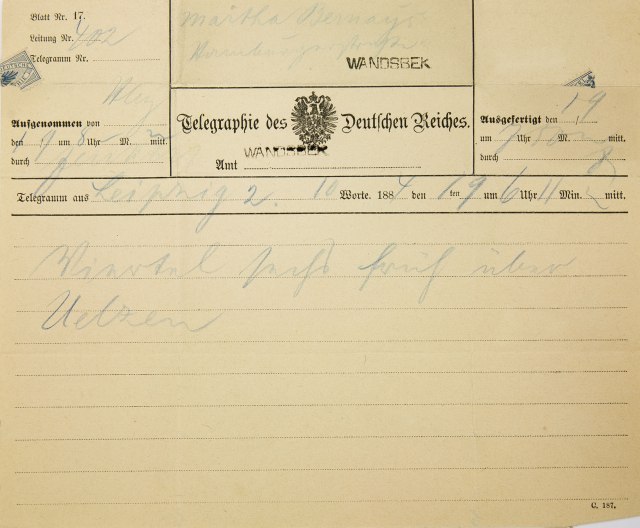 Blatt Nr. 17.
Leitung Nr. 402
Telegramm Nr.
Martha Bernays
Hamburgerstraße
WANDSBEK
Aufgenommen von
den 19 um 8 Uhr M. mitt.
durch
Telegraphie des Deutschen Reiches.
Amt WANDSBEK
Ausgefertigt den 19
um Uhr M. mitt.
durch
Telegramm aus Leipzig 2. 10 Worte. 1884 den 1 ten 9 um 6 Uhr 11 Min. mitt.
Viertel sechs früh über
Uelzen
C. 187.